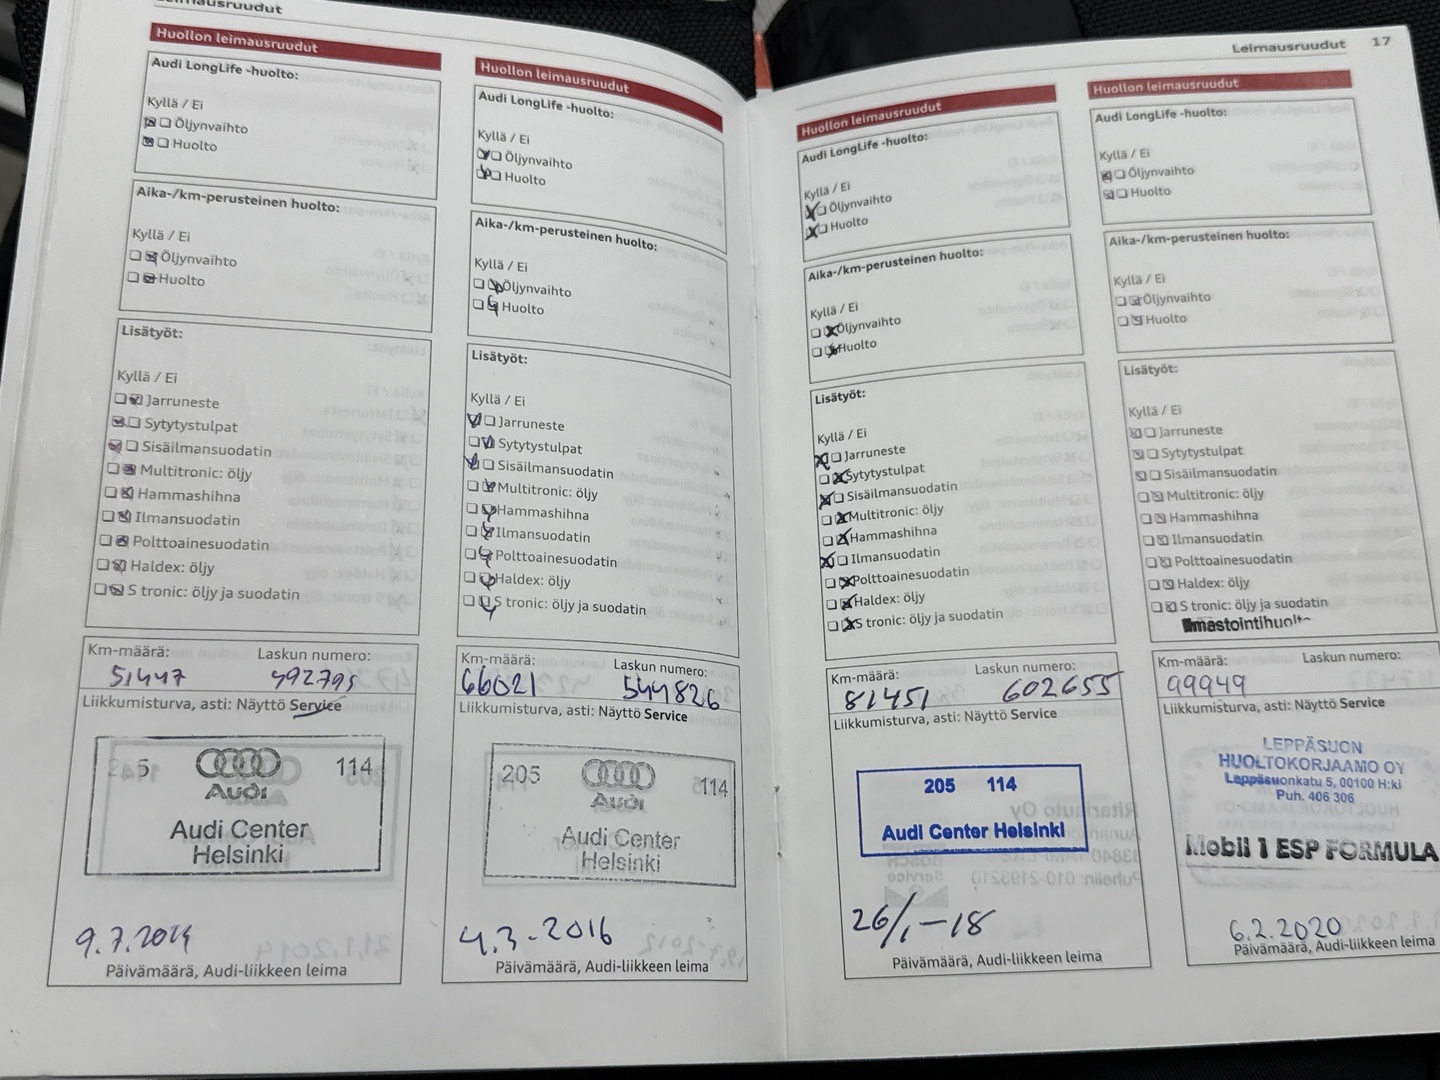 Leimausruudut
Huollon leimausruudut
Audi LongLife -huolto:
Kyllä / Ei
Öljynvaihto
Huolto
Aika-/km-perusteinen huolto:
Kyllä / Ei
Öljynvaihto
Huolto
Lisätyöt:
Kyllä / Ei
Jarruneste
Sytytystulpat
Sisäilmansuodatin
Multitronic: öljy
Hammashihna
Ilmansuodatin
Polttoainesuodatin
Haldex: öljy
S tronic: öljy ja suodatin
Km-määrä: Laskun numero:
51447 492795
Liikkumisturva, asti: Näyttö Service
5 114
Audi
Audi Center
Helsinki
9.7.2014
Päivämäärä, Audi-liikkeen leima
Huollon leimausruudut
Audi LongLife -huolto:
Kyllä / Ei
Öljynvaihto
Huolto
Aika-/km-perusteinen huolto:
Kyllä / Ei
Öljynvaihto
Huolto
Lisätyöt:
Kyllä / Ei
Jarruneste
Sytytystulpat
Sisäilmansuodatin
Multitronic: öljy
Hammashihna
Ilmansuodatin
Polttoainesuodatin
Haldex: öljy
S tronic: öljy ja suodatin
Km-määrä: Laskun numero:
66021 544826
Liikkumisturva, asti: Näyttö Service
205 114
Audi
Audi Center
Helsinki
4.3-2016
Päivämäärä, Audi-liikkeen leima
Leimausruudut 17
Huollon leimausruudut
Audi LongLife -huolto:
Kyllä / Ei
Öljynvaihto
Huolto
Aika-/km-perusteinen huolto:
Kyllä / Ei
Öljynvaihto
Huolto
Lisätyöt:
Kyllä / Ei
Jarruneste
Sytytystulpat
Sisäilmansuodatin
Multitronic: öljy
Hammashihna
Ilmansuodatin
Polttoainesuodatin
Haldex: öljy
S tronic: öljy ja suodatin
Km-määrä: Laskun numero:
81451 602655
Liikkumisturva, asti: Näyttö Service
205 114
Audi Center Helsinki
26/1-18
Päivämäärä, Audi-liikkeen leima
Huollon leimausruudut
Audi LongLife -huolto:
Kyllä / Ei
Öljynvaihto
Huolto
Aika-/km-perusteinen huolto:
Kyllä / Ei
Öljynvaihto
Huolto
Lisätyöt:
Kyllä / Ei
Jarruneste
Sytytystulpat
Sisäilmansuodatin
Multitronic: öljy
Hammashihna
Ilmansuodatin
Polttoainesuodatin
Haldex: öljy
S tronic: öljy ja suodatin
Ilmastointihuolto
Km-määrä: Laskun numero:
99949
Liikkumisturva, asti: Näyttö Service
LEPPÄSUON
HUOLTOKORJAAMO OY
Leppäsuonkatu 5, 00100 H:ki
Puh. 406 306
Mobil 1 ESP FORMULA
6.2.2020
Päivämäärä, Audi-liikkeen leima